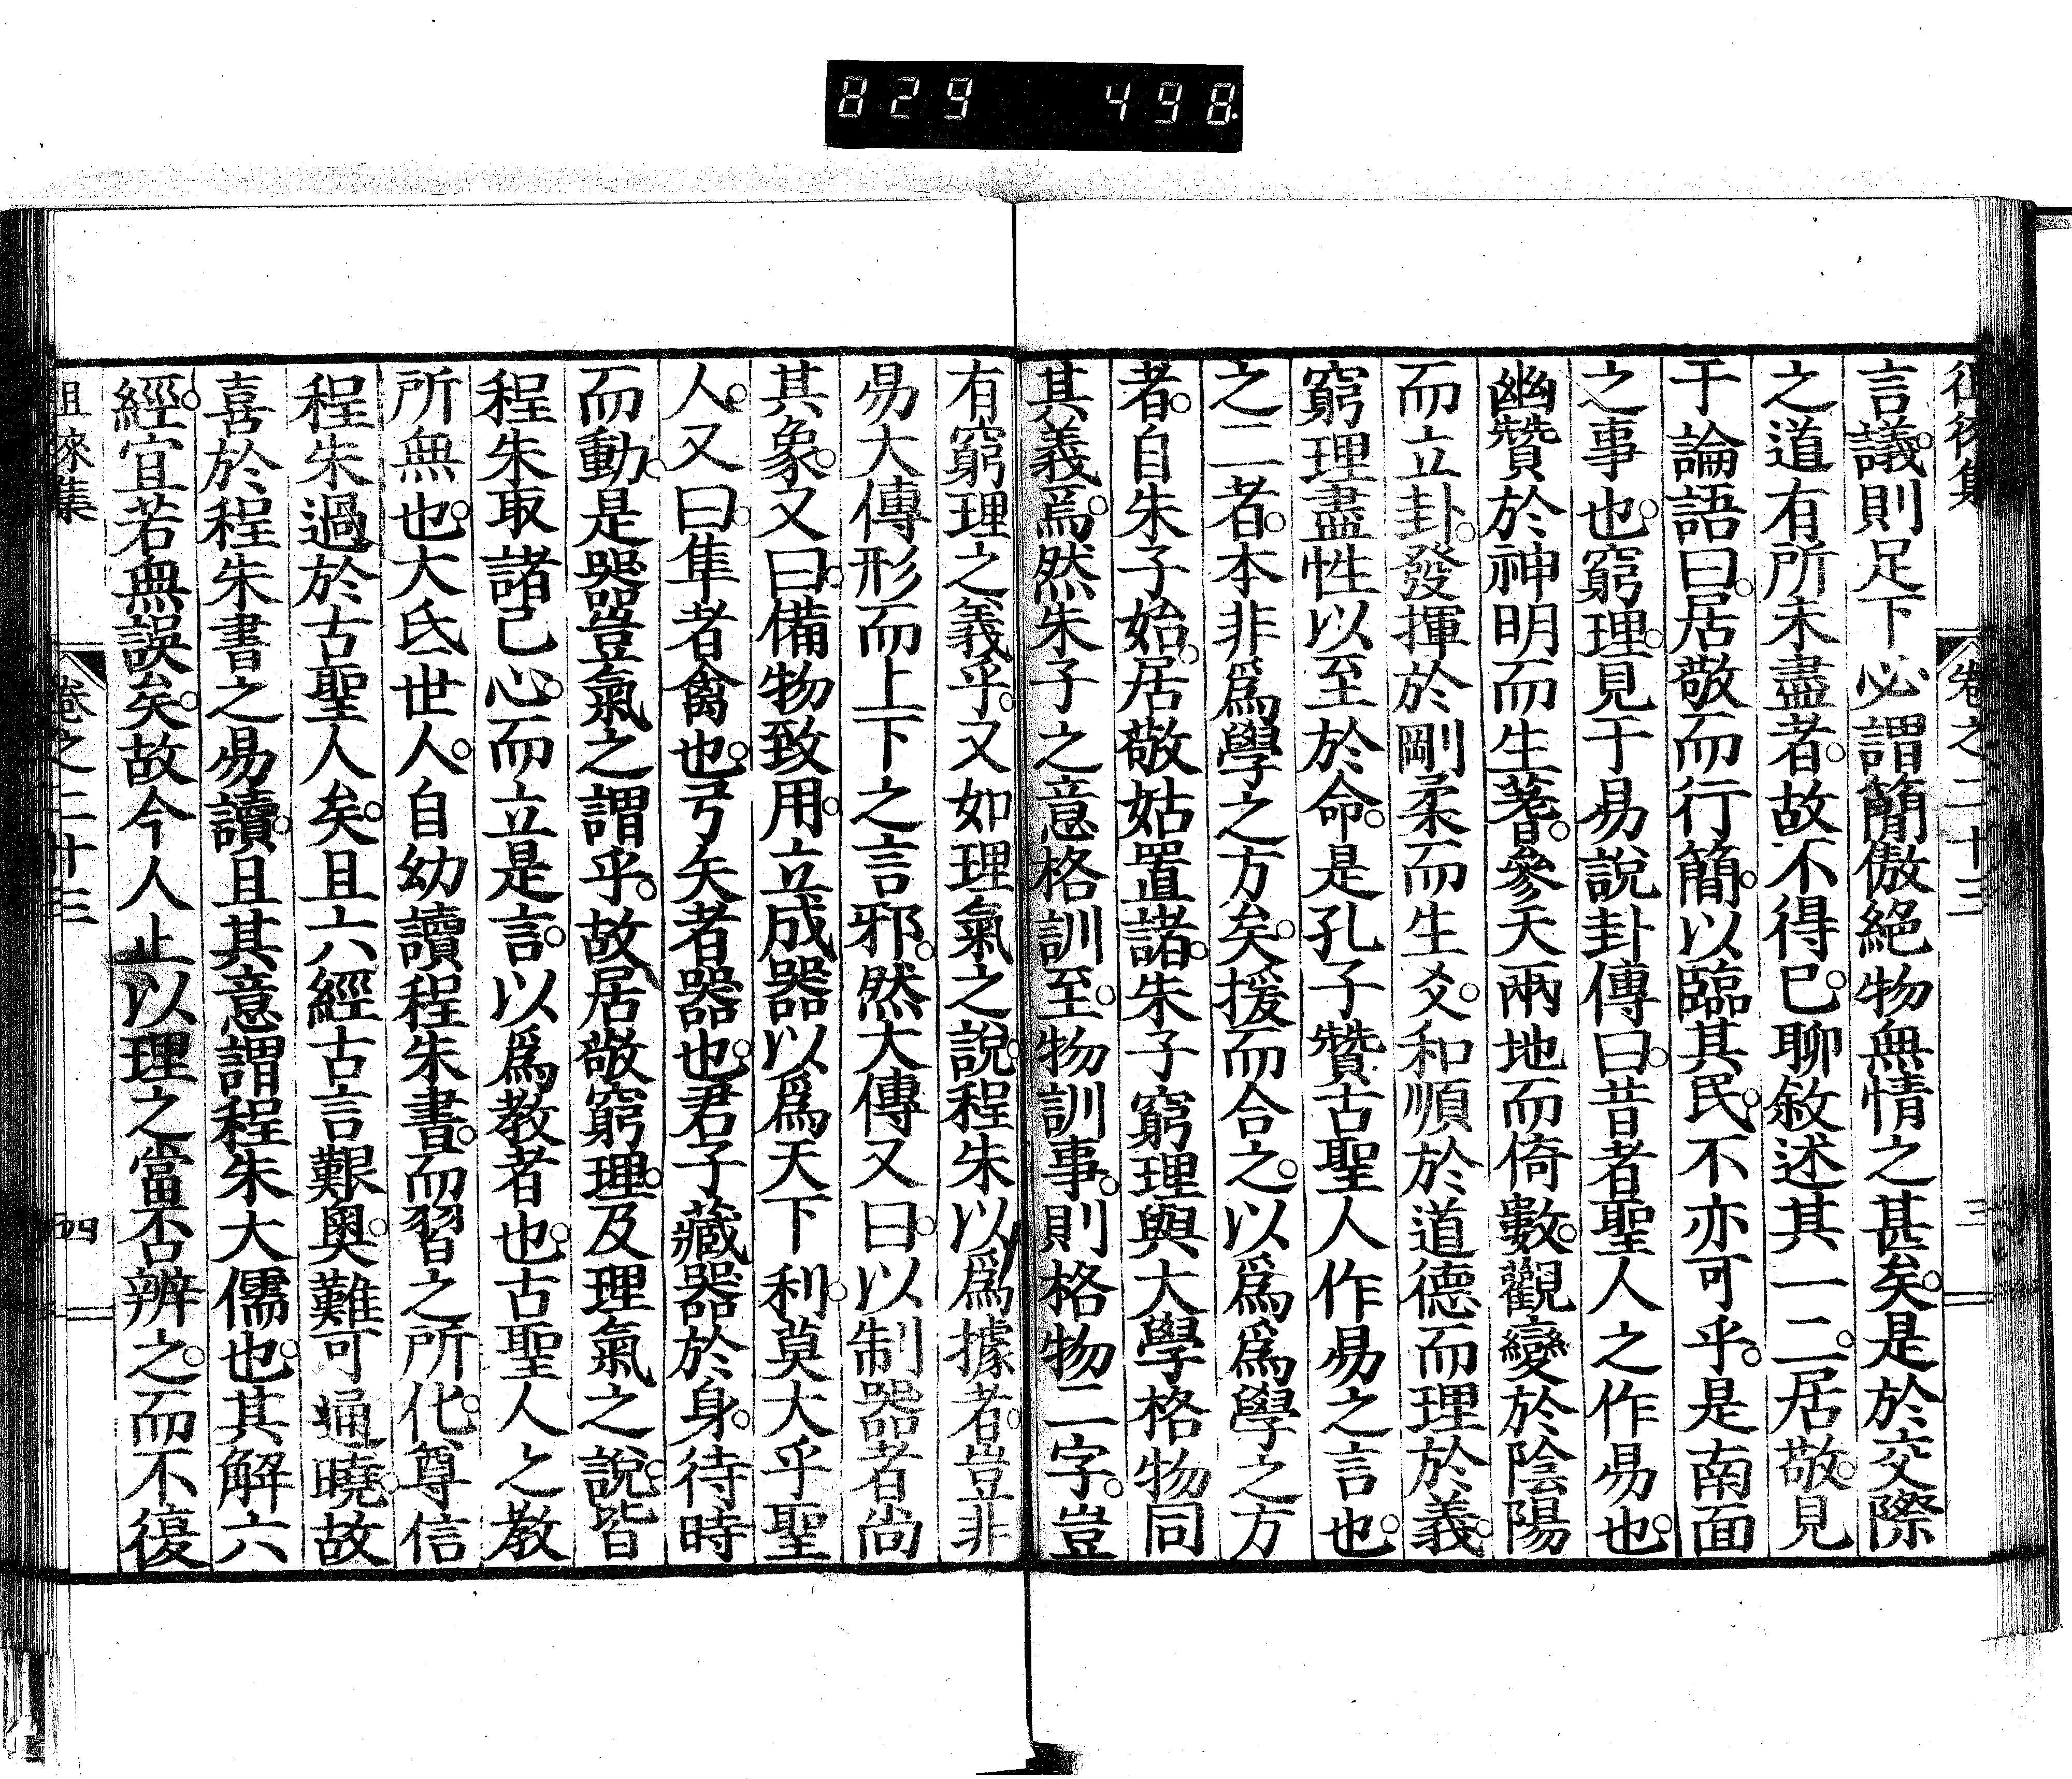 829 498
徂徠集 卷之二十三 三
言議。則足下必謂簡傲絕物無情之甚矣。是於交際
之道有所未盡者。故不得已。聊敘述其一二。居敬。見
于論語曰。居敬而行簡。以臨其民。不亦可乎。是南面
之事也。窮理。見于易說卦傳曰。昔者聖人之作易也。
幽贊於神明而生蓍。參天兩地而倚數。觀變於陰陽
而立卦。發揮於剛柔而生爻。和順於道德而理於義。
窮理盡性以至於命。是孔子贊古聖人作易之言也。
之二者。本非爲學之方矣。援而合之。以爲爲學之方
者。自朱子始。居敬姑置諸。朱子窮理與大學格物同
其義焉。然朱子之意格訓至。物訓事。則格物二字。豈
有窮理之義乎。又如理氣之說。程朱以爲據者。豈非
易大傳形而上下之言邪。然大傳又曰。以制器者尚
其象。又曰。備物致用。立成器以爲天下利。莫大乎聖
人。又曰。隼者禽也。弓矢者器也。君子藏器於身。待時
而動。是器豈氣之謂乎。故居敬窮理。及理氣之說。皆
程朱取諸己心。而立是言。以爲教者也。古聖人之教
所無也。大氐世人。自幼讀程朱書。而習之所化。尊信
程朱過於古聖人矣。且六經古言艱奧。難可通曉。故
喜於程朱書之易讀。且其意謂程朱大儒也。其解六
經。宜若無誤矣。故今人止以理之當否辨之。而不復
徂徠集 卷之二十三 四